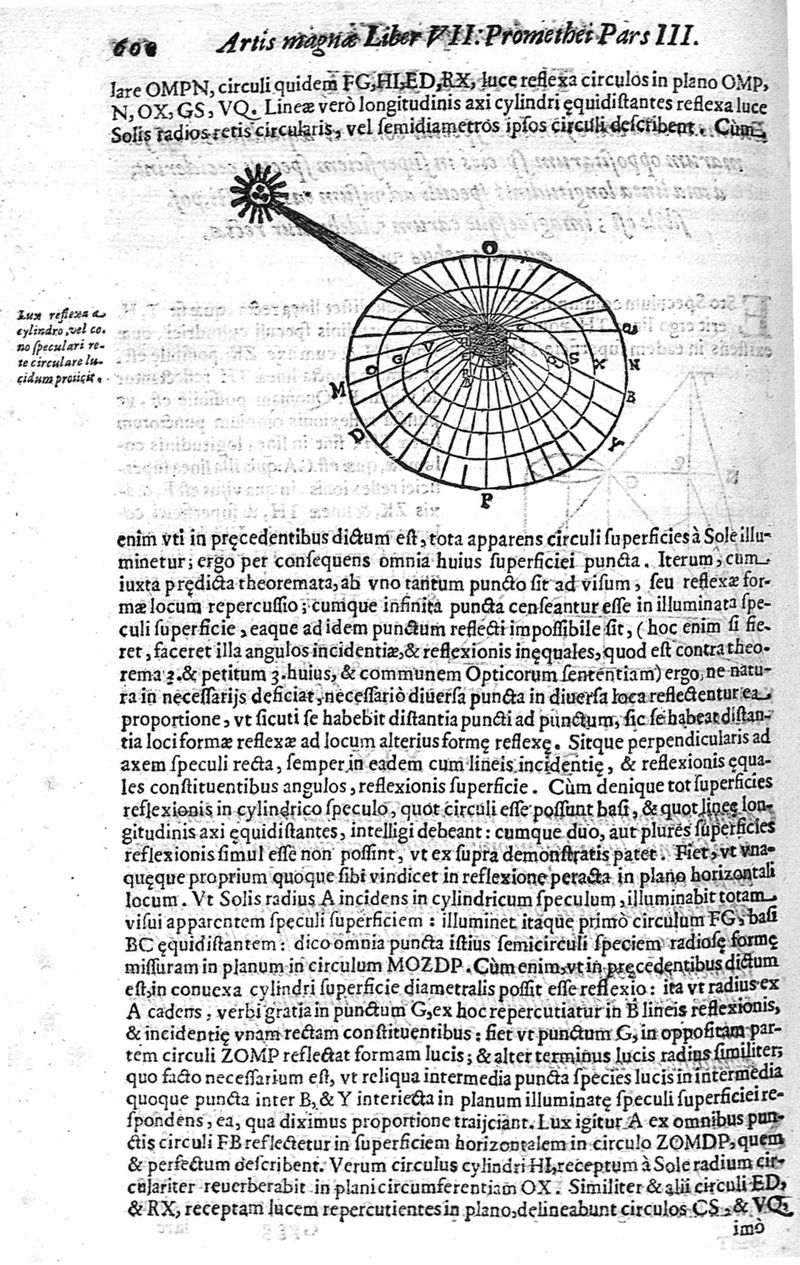 600 Artis magnæ Liber VII: Promethei Pars III.
lare OMPN, circuli quidem FG, HI, ED, RX, luce reflexa circulos in plano OMP,
N, OX, GS, VQ. Lineæ verò longitudinis axi cylindri ęquidiſtantes reflexa luce
Solis radios retis circularis, vel ſemidiametros ipſos circuli deſcribent. Cùm
O
Lux reflexa a
cylindro, vel co-
no ſpeculari re-
te circulare lu-
cidum proiicit.
M O G V S X N
B
D Y
P
enim vti in pręcedentibus dictum eſt, tota apparens circuli ſuperficies à Sole illu-
minetur; ergo per conſequens omnia huius ſuperficiei puncta. Iterum, cum
iuxta prędicta theoremata, ab vno tantum puncto ſit ad viſum, ſeu reflexæ for-
mæ locum repercuſſio; cumque infinita puncta cenſeantur eſſe in illuminata ſpe-
culi ſuperficie, eaque ad idem punctum reflecti impoſſibile ſit, (hoc enim ſi fie-
ret, faceret illa angulos incidentiæ, & reflexionis inęquales, quod eſt contra theo-
rema 2. & petitum 3. huius, & communem Opticorum ſententiam) ergo, ne natu-
ra in neceſſarijs deficiat, neceſſariò diuerſa puncta in diuerſa loca reflectentur ea
proportione, vt ſicuti ſe habebit diſtantia puncti ad punctum, ſic ſe habeat diſtan-
tia loci formæ reflexæ ad locum alterius formę reflexę. Sitque perpendicularis ad
axem ſpeculi recta, ſemper in eadem cum lineis incidentię, & reflexionis ęqua-
les conſtituentibus angulos, reflexionis ſuperficie. Cùm denique tot ſuperficies
reflexionis in cylindrico ſpeculo, quot circuli eſſe poſſunt baſi, & quot lineę lon-
gitudinis axi ęquidiſtantes, intelligi debeant: cumque duo, aut plures ſuperficies
reflexionis ſimul eſſe non poſſint, vt ex ſupra demonſtratis patet. Fiet, vt vna-
quęque proprium quoque ſibi vindicet in reflexione peracta in plano horizontali
locum. Vt Solis radius A incidens in cylindricum ſpeculum, illuminabit totam
viſui apparentem ſpeculi ſuperficiem: illuminet itaque primò circulum FG, baſi
BC ęquidiſtantem: dico omnia puncta iſtius ſemicirculi ſpeciem radioſę formę
miſſuram in planum in circulum MOZDP. Cùm enim, vt in pręcedentibus dictum
eſt, in conuexa cylindri ſuperficie diametralis poſſit eſſe reflexio: ita vt radius ex
A cadens, verbi gratia in punctum G, ex hoc repercutiatur in B lineis reflexionis,
& incidentię vnam rectam conſtituentibus: fiet vt punctum G, in oppoſitam par-
tem circuli ZOMP reflectat formam lucis; & alter terminus lucis radius ſimiliter;
quo facto neceſſarium eſt, vt reliqua intermedia puncta ſpecies lucis in intermedia
quoque puncta inter B, & Y interiecta in planum illuminatę ſpeculi ſuperficiei re-
ſpondens, ea, qua diximus proportione traijciant. Lux igitur A ex omnibus pun-
ctis circuli FB reflectetur in ſuperficiem horizontalem in circulo ZOMDP, quem
& perfectum deſcribent. Verum circulus cylindri HI, receptum à Sole radium cir-
culariter reuerberabit in plani circumferentiam OX. Similiter & alii circuli ED,
& RX, receptam lucem repercutientes in plano, delineabunt circulos CS, & VQ,
imò